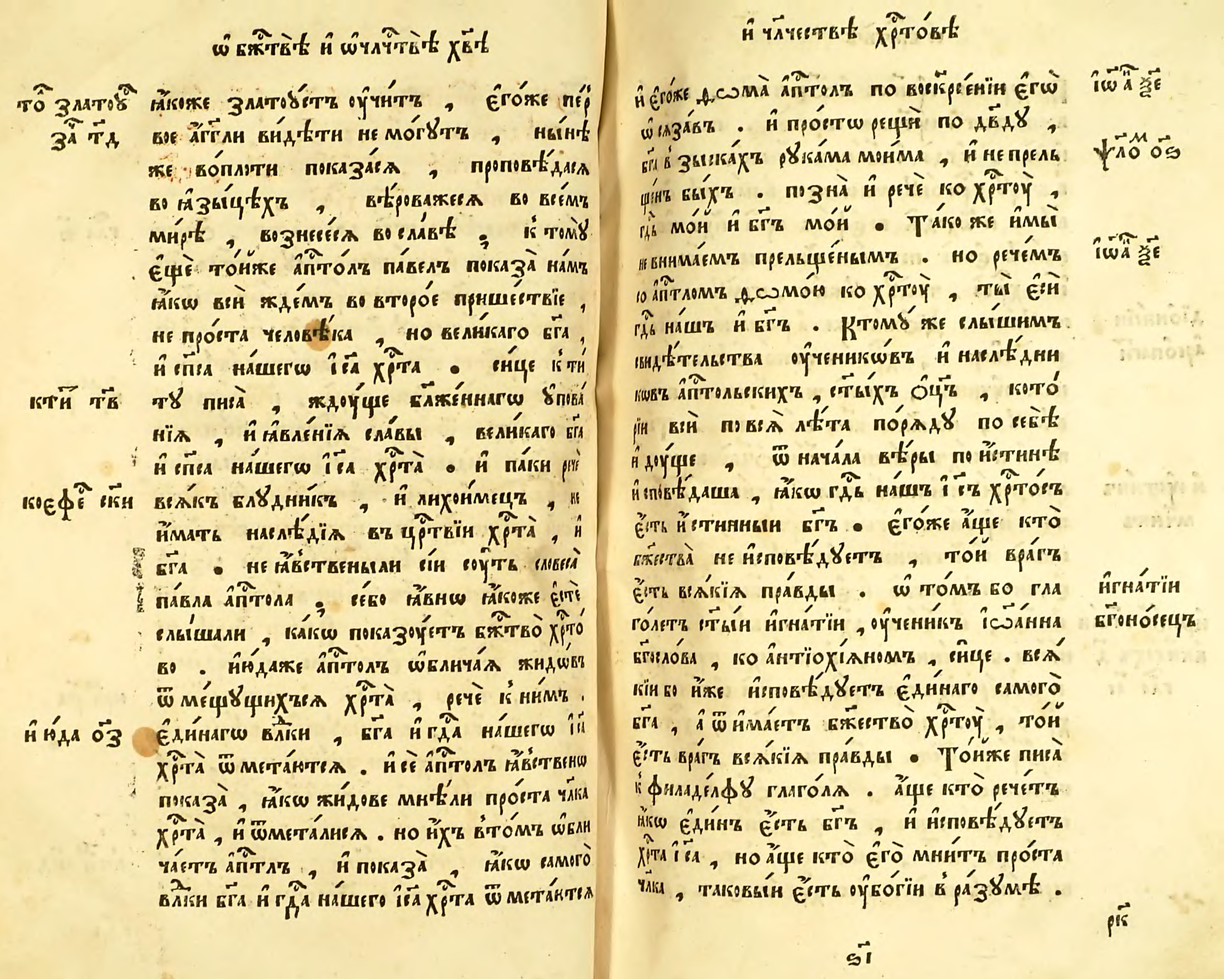 ѡ҆ бж҃твѣ и҆ ѡ҆члч҃твѣ хв҃ѣ
то̑ златоꙋ̑
за̑ т҃д
ꙗ҆́коже златоꙋ́стъ ᲂу҆́читъ , є҆го́же пе́р
вое а҆́гг҃ли ви́дѣти не мо́гутъ , ны́нѣ
же во́плоти показа́сѧ , проповѣ́дасѧ
во ꙗ҆зы́цѣхъ , вѣ́роважесѧ во все́мъ
ми́рѣ , вознесе́сѧ во сла́вѣ . к то́мꙋ̀
є҆щѐ то́йже а҆пⷭ҇то́лъ па́велъ показа̀ на́мъ
ꙗ҆́кѡ всѝ жде́мъ во второ́е прише́ствїе ,
не про́ста человѣ́ка , но вели́каго бг҃а ,
и҆ сп҃са на́шегѡ і҆с҃а хрⷭ҇та̀ . си́це к ти́
кти҃ т҃в
тꙋ писа̀ , ждꙋ́ще бл҃же́ннагѡ ᲂу҆пова́
нїѧ , и҆ ꙗ҆вле́нїѧ сла́вы , вели́каго бг҃а
и҆ сп҃са на́шегѡ і҆с҃а хрⷭ҇та̀ . и҆ па́ки речѐ
коеѳе̑ с҃ки
всѧ́къ блꙋ́дникъ , и҆ лихои́мецъ , не
и҆́мать наслѣ́дїѧ въ црⷭ҇твїи хрⷭ҇та̀ , и҆
бг҃а . не ꙗ҆́вственыли сїи̑ сꙋ́ть словеса̀
па́вла а҆пⷭ҇тола . се́бо ꙗ҆́внѡ ꙗ҆́коже є҆стѐ
слы́шали , ка́кѡ показꙋ́етъ бжⷭ҇тво̀ хрⷭ҇то́
во . и҆ю́даже а҆пⷭ҇толъ ѡ҆блича́ѧ жидѡ́въ
ѿ ме́щꙋщихъсѧ хрⷭ҇та̀ , речѐ к ни́мъ .
и҆ ю́да о҃з
є҆ди́нагѡ влⷣки , бг҃а и҆ гд҇а на́шегѡ і҆с҃
хрⷭ҇та̀ ѿ мета́ютсѧ . и҆ сѐ а҆пⷭ҇толъ ꙗ҆́вственѡ
показа̀ , ꙗ҆́кѡ жи́дове мнѣ́ли про́ста чл҃ка
хрⷭ҇та̀ , и҆ ѿмета́лисѧ . но и҆́хъ вто́мъ ѡ҆бли
ча́етъ а҆пⷭ҇тлъ , и҆ показа̀ , ꙗ҆́кѡ самого̀
влⷣки бг҃а и҆ гдⷭ҇а на́шего і҆с҃а хрⷭ҇та̀ ѿ мета́ютсѧ
и҆ чл҃чествѣ хрⷭ҇то́вѣ
і҆ѡа̑ ѯ҃е
и҆ є҆го́же ѳѡма̀ а҆пⷭ҇толъ по воскрⷭ҇е́нїи є҆гѡ̀
ѡ҆сѧза́въ . и҆ про́стѡ рещѝ по дв҃дꙋ ,
ѱⷧ҇оⷨ о҃ѕ
бг҃а взыска́хъ рꙋка́ма мои́ма , и҆ не прель
ще́нъ бы́хъ . позна̀ и҆ речѐ ко хрⷭ҇тꙋ̀ ,
гдⷭ҇ь мо́й и҆ бг҃ъ мо́й . Та́ко же и҆ мы̀
і҆ѡа̑ ѯ҃е
не внима́емъ прельще́нымъ . но рече́мъ
со а҆пⷭ҇тломъ ѳѡмо́ю ко хрⷭ҇тꙋ̀ , ты̀ є҆сѝ
гдⷭ҇ь на́шъ и҆ бг҃ъ . Ктомꙋ́ же слы́шимъ
свидѣ́тельства ᲂу҆ченикѡ́въ и҆ наслѣ́дни
кѡвъ а҆пⷭ҇то́льскихъ , ст҃ы́хъ ѻ҆ц҃ъ , кото́
рїи всѝ по всѧ̀ лѣ́та по́рѧдꙋ по себѣ̀
и҆дꙋ́ще , ѿ нача́ла вѣ́ры по и҆́стинѣ
и҆сповѣ́даша , ꙗ҆́кѡ гдⷭ҇ь на́шъ і҆с҃ъ хрⷭ҇то́съ
є҆́сть и҆́стинныи бг҃ъ . є҆го́же а҆́ще кто̀
бжⷭ҇ества̀ не и҆сповѣ́дꙋетъ , то́й вра́гъ
є҆́сть всѧ́кїѧ пра́вды . ѡ҆ то́мъ бо гла
и҆гна́тїи
го́летъ ст҃ы́и и҆гна́тїи , ᲂу҆чени́къ і҆ѡа́нна
бг҃оно́сецъ
бг҃осло́ва , ко а҆нтїохі́ѧномъ , си́це . всѧ́
кїи бо и҆́же и҆сповѣ́дꙋетъ є҆ди́наго самого̀
бг҃а , а҆ ѿ има́етъ бжⷭ҇ество̀ хрⷭ҇тꙋ̀ , то́й
є҆́сть вра́гъ всѧ́кїѧ пра́вды . То́йже писа̀
к филаде́лфꙋ глаго́лѧ . а҆́ще кто̀ рече́тъ
ꙗ҆́кѡ є҆ди́нъ є҆́сть бг҃ъ , и҆ и҆сповѣ́дꙋетъ
хрⷭ҇та і҆с҃а , но а҆́ще кто̀ є҆го̀ мни́тъ про́ста
чл҃ка , таковы́и є҆́сть ᲂу҆бо́гїи в ра́зꙋмѣ .
рк҃
ѕ҃і